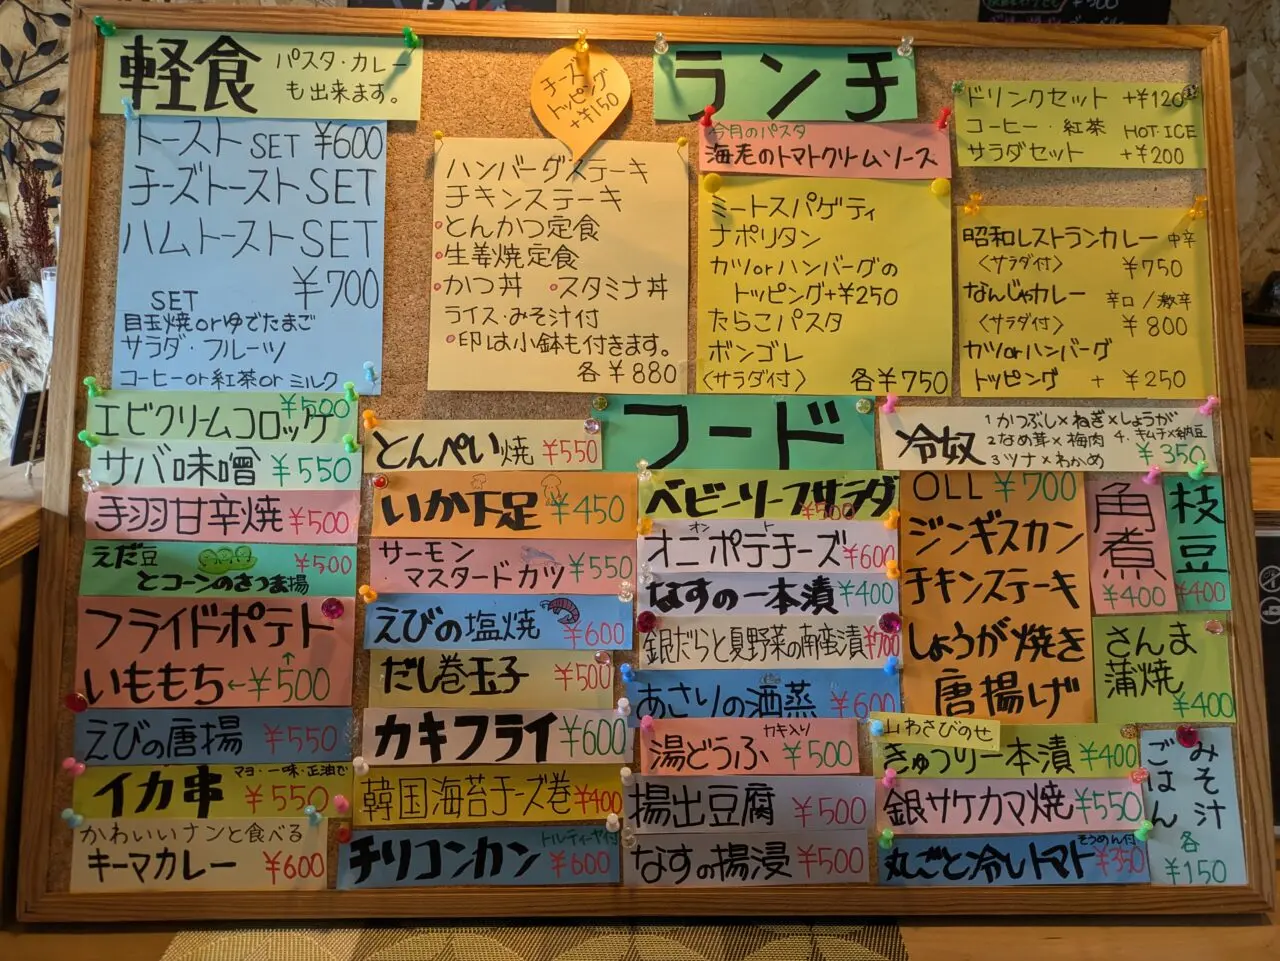 軽食
パスタ・カレー
も出来ます。
トースト SET ¥600
チーズトーストSET
ハムトーストSET
¥700
SET
目玉焼orゆでたまご
サラダ・フルーツ
コーヒーor紅茶orミルク
チーズ
トッピング
+¥150
ハンバーグステーキ
チキンステーキ
・とんかつ定食
・生姜焼定食
・かつ丼 ・スタミナ丼
ライス・みそ汁付
・印は小鉢も付きます。
各¥880
ランチ
今月のパスタ
海老のトマトクリームソース
ミートスパゲティ
ナポリタン
カツorハンバーグの
トッピング+¥250
たらこパスタ
ボンゴレ
〈サラダ付〉 各¥750
ドリンクセット +¥120
コーヒー・紅茶 HOT・ICE
サラダセット +¥200
昭和レストランカレー 中辛
〈サラダ付〉 ¥750
なんじゃカレー 辛口/激辛
〈サラダ付〉 ¥800
カツorハンバーグ
トッピング + ¥250
フード
エビクリームコロッケ ¥500
サバ味噌 ¥550
手羽甘辛焼 ¥500
えだ豆
とコーンのさつま揚 ¥500
フライドポテト
いももち ←¥500
えびの唐揚 ¥550
イカ串 マヨ・一味・正油で ¥550
かわいいナンと食べる
キーマカレー ¥600
とんぺい焼 ¥550
いか下足 ¥450
サーモン
マスタードカツ ¥550
えびの塩焼 ¥600
だし巻玉子 ¥500
カキフライ ¥600
韓国海苔チーズ巻 ¥400
チリコンカン トルティーヤ付 ¥600
ベビーリーフサラダ ¥500
オニポテチーズ ¥600
オン ト
なすの一本漬 ¥400
銀だらと夏野菜の南蛮漬 ¥700
あさりの酒蒸 ¥600
湯どうふ カキ入り ¥500
揚出豆腐 ¥500
なすの揚浸 ¥500
冷奴
1かつぶし×ねぎ×しょうが
2なめ茸×梅肉 4.キムチ×納豆
3ツナ×わかめ ¥350
OLL ¥700
ジンギスカン
チキンステーキ
しょうが焼き
唐揚げ
角煮 ¥400
枝豆 ¥400
さんま
蒲焼 ¥400
山わさびのせ
きゅうり一本漬 ¥400
銀サケカマ焼 ¥550
丸ごと冷しトマト そうめん付 ¥350
みそ汁
ごはん
各
¥150